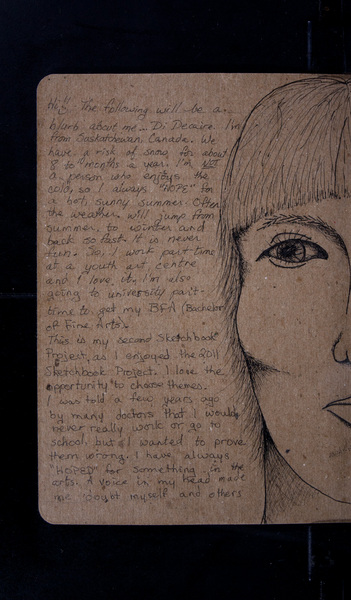 Hi!! The following will be a
blurb about me... Di Decaire. I'm
from Saskatchewan, Canada. We
have a risk of snow for about
8 to 9 months a year. I'm NOT
a person who enjoys the
cold, so I always "HOPE" for
a hot, sunny summer. Often
the weather will jump from
summer to winter and
back so fast. It is never
So, I work part-time
at a youth art centre
and I love it. I'm also
going to university part-
time to get my BFA (Bachelor
of Fine Arts).
This is my second Sketchbook
Project, as I enjoyed the 2011
Sketchbook Project. I love the
opportunity to chose themes.
I was told a few years ago
by many doctors that I would
never really work or go to
school but I wanted to prove
them wrong. I have always
"HOPED" for something in the
arts. A voice in my head made
me doubt myself and others